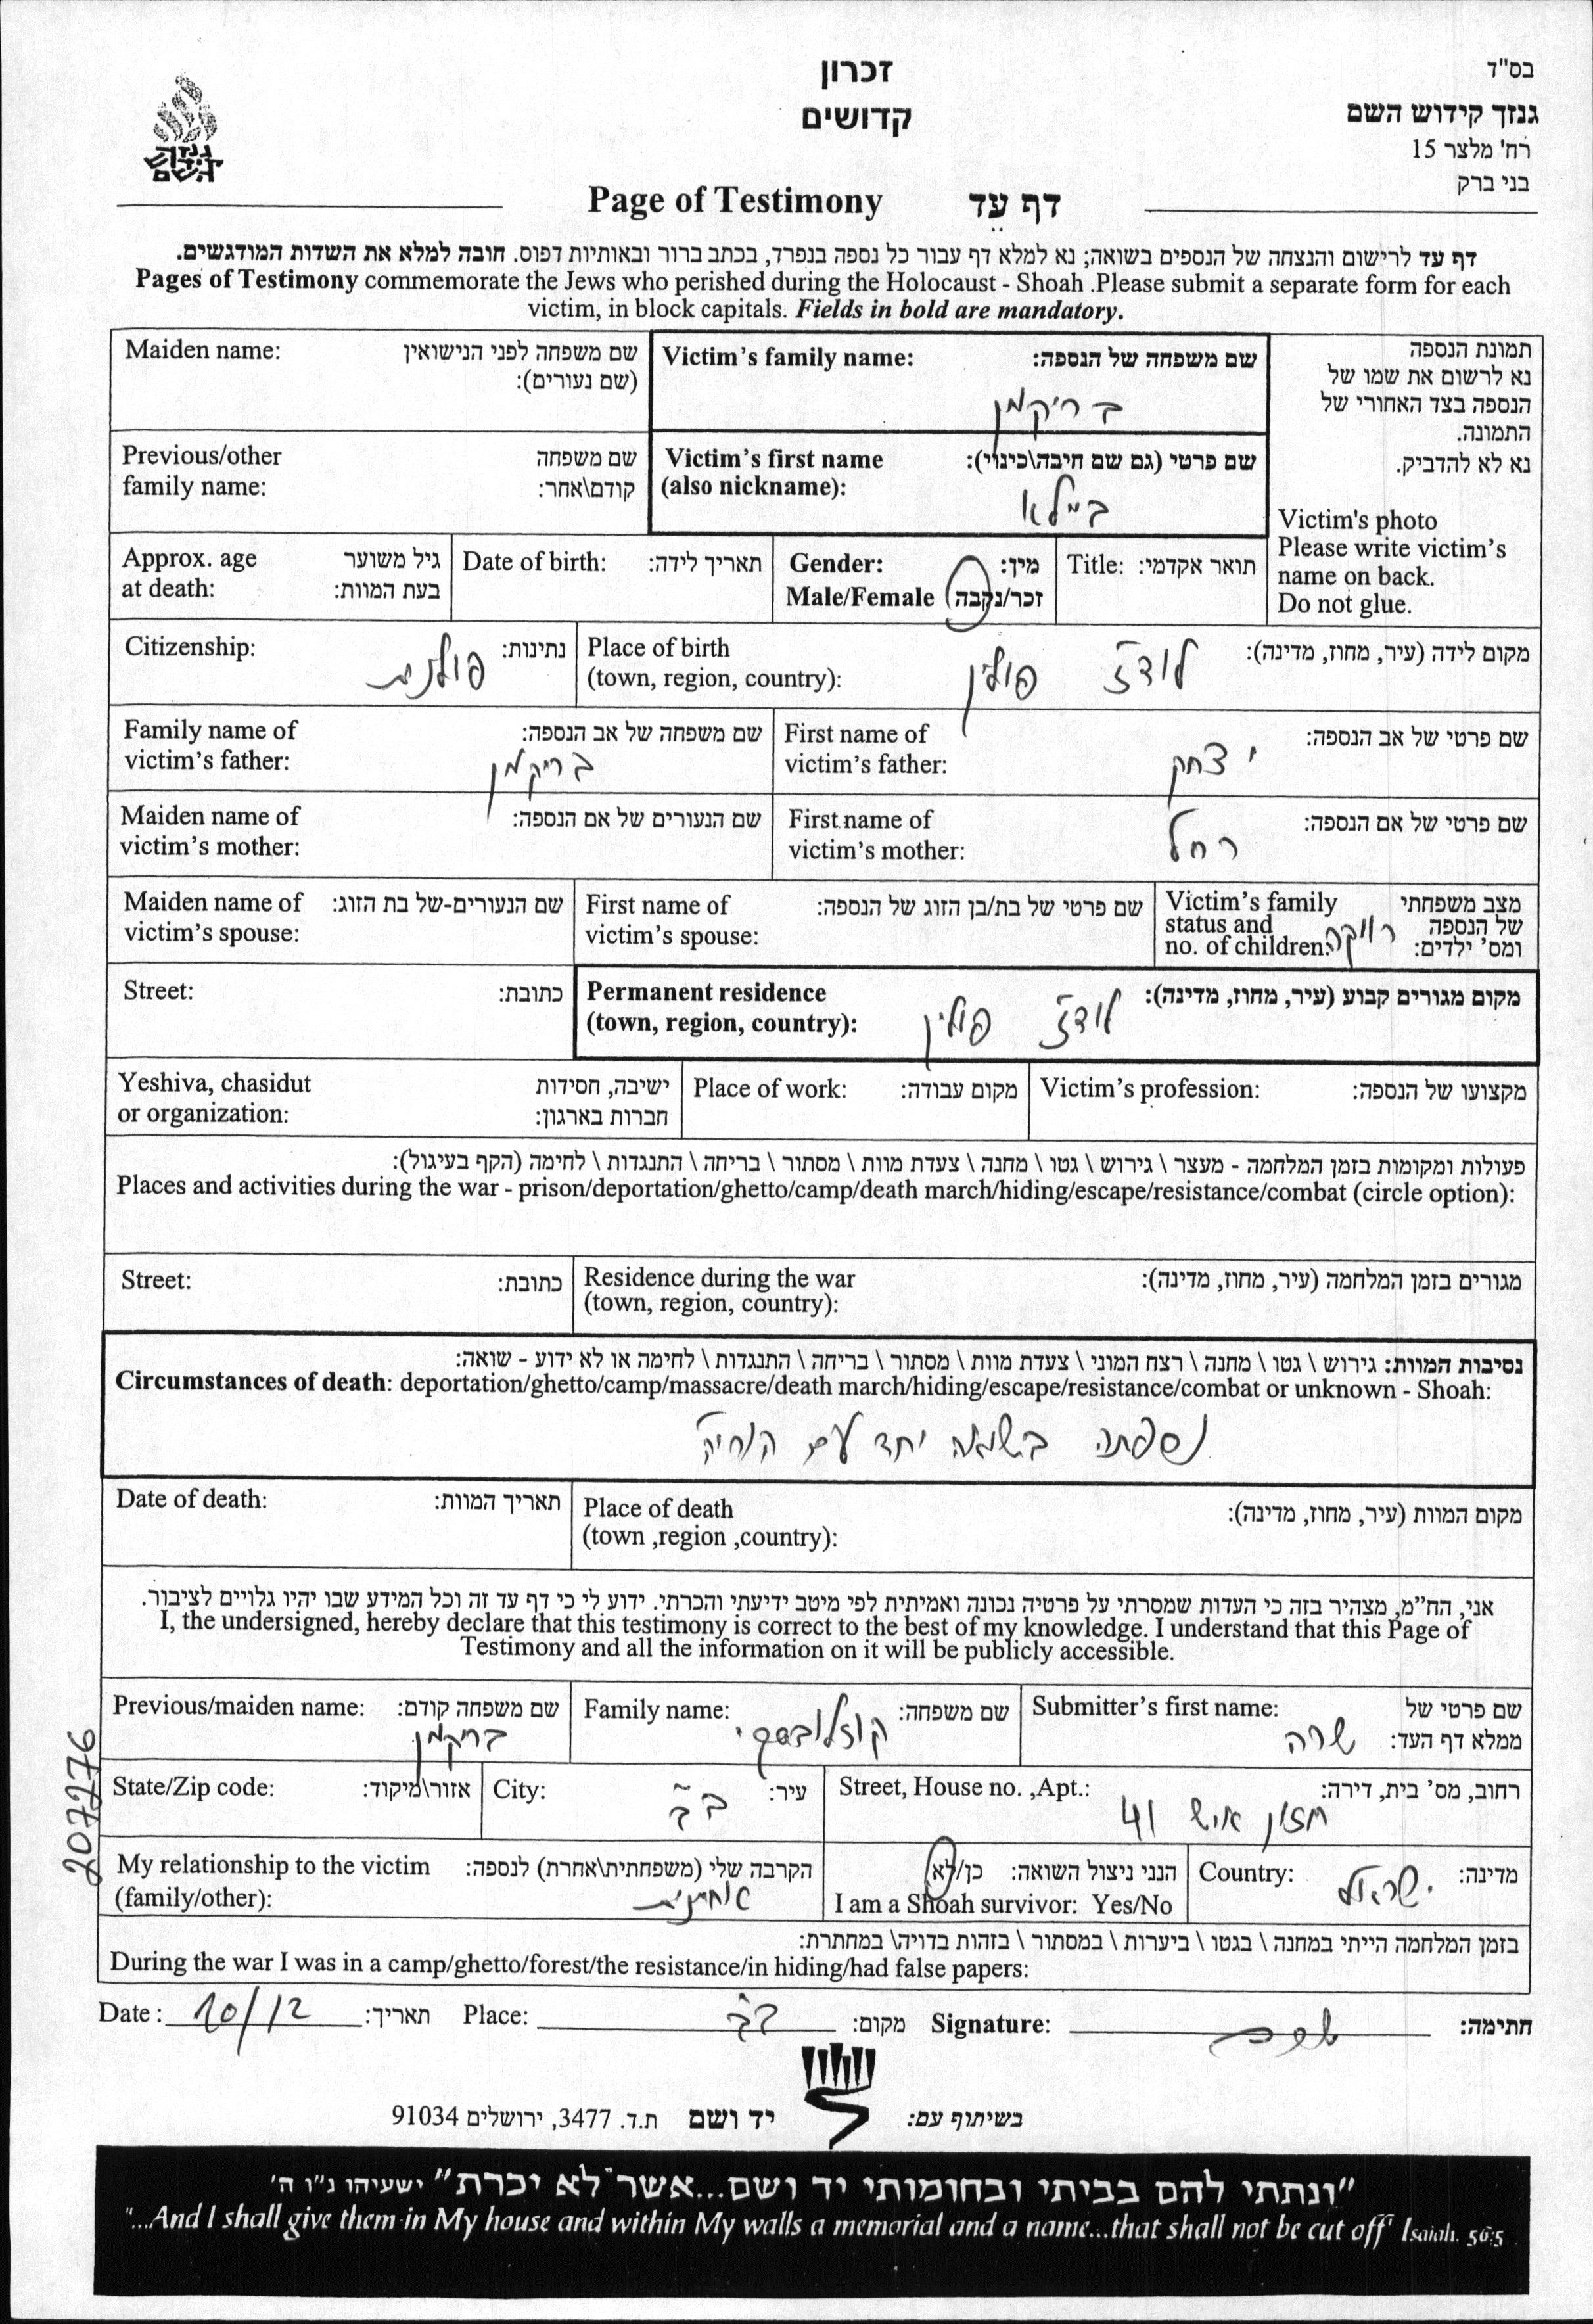 בס"ד
גנזך קידוש השם
רח' מלצר 15
בני ברק
זכרון
קדושים
גנזך
קידוש
השם
Page of Testimony דף עֵד
דף עד לרישום והנצחה של הנספים בשואה; נא למלא דף עבור כל נספה בנפרד, בכתב ברור ובאותיות דפוס. חובה למלא את השדות המודגשים.
Pages of Testimony commemorate the Jews who perished during the Holocaust - Shoah .Please submit a separate form for each
victim, in block capitals. Fields in bold are mandatory.
תמונת הנספה
נא לרשום את שמו של
הנספה בצד האחורי של
התמונה.
נא לא להדביק.
Victim's photo
Please write victim's
name on back.
Do not glue.
Victim's family name: שם משפחה של הנספה:
בריקמן
Maiden name: שם משפחה לפני הנישואין
(שם נעורים):
Victim's first name שם פרטי (גם שם חיבה\כינוי):
(also nickname):
ביילא
Previous/other שם משפחה
family name: קודם\אחר:
Title: תואר אקדמי:
Gender: מין:
Male/Female זכר/נקבה
Date of birth: תאריך לידה:
Approx. age גיל משוער
at death: בעת המוות:
Place of birth מקום לידה (עיר, מחוז, מדינה):
(town, region, country): לודז פולין
Citizenship: נתינות: פולנית
First name of שם פרטי של אב הנספה:
victim's father: יצחק
Family name of שם משפחה של אב הנספה:
victim's father: בריקמן
First name of שם פרטי של אם הנספה:
victim's mother: רחל
Maiden name of שם הנעורים של אם הנספה:
victim's mother:
Victim's family מצב משפחתי
status and של הנספה
no. of children: ומס' ילדים: רווקה
First name of שם פרטי של בת/בן הזוג של הנספה:
victim's spouse:
Maiden name of שם הנעורים-של בת הזוג:
victim's spouse:
Permanent residence מקום מגורים קבוע (עיר, מחוז, מדינה):
(town, region, country): לודז פולין
Street: כתובת:
Victim's profession: מקצועו של הנספה:
Place of work: מקום עבודה:
Yeshiva, chasidut ישיבה, חסידות
or organization: חברות בארגון:
פעולות ומקומות בזמן המלחמה - מעצר \ גירוש \ גטו \ מחנה \ צעדת מוות \ מסתור \ בריחה \ התנגדות \ לחימה (הקף בעיגול):
Places and activities during the war - prison/deportation/ghetto/camp/death march/hiding/escape/resistance/combat (circle option):
Residence during the war מגורים בזמן המלחמה (עיר, מחוז, מדינה):
(town, region, country):
Street: כתובת:
נסיבות המוות: גירוש \ גטו \ מחנה \ רצח המוני \ צעדת מוות \ מסתור \ בריחה \ התנגדות \ לחימה או לא ידוע - שואה:
Circumstances of death: deportation/ghetto/camp/massacre/death march/hiding/escape/resistance/combat or unknown - Shoah:
נספתה בשואה יחד עם
Place of death מקום המוות (עיר, מחוז, מדינה):
(town ,region ,country):
Date of death: תאריך המוות:
אני, הח״מ, מצהיר בזה כי העדות שמסרתי על פרטיה נכונה ואמיתית לפי מיטב ידיעתי והכרתי. ידוע לי כי דף עד זה וכל המידע שבו יהיו גלויים לציבור.
I, the undersigned, hereby declare that this testimony is correct to the best of my knowledge. I understand that this Page of
Testimony and all the information on it will be publicly accessible.
Submitter's first name: שם פרטי של
ממלא דף העד: שרה
Family name: שם משפחה: קוזלובסקי
Previous/maiden name: שם משפחה קודם:
בריקמן
Street, House no. ,Apt.: רחוב, מס' בית, דירה:
חזון איש 41
City: עיר: ב"ב
State/Zip code: אזור\מיקוד:
Country: מדינה: ישראל
הנני ניצול השואה: כן/לא
I am a Shoah survivor: Yes/No
My relationship to the victim הקרבה שלי (משפחתית\אחרת) לנספה:
(family/other): אחיינית
בזמן המלחמה הייתי במחנה \ בגטו \ ביערות \ במסתור \ בזהות בדויה\ במחתרת:
During the war I was in a camp/ghetto/forest/the resistance/in hiding/had false papers:
Date: 10/12 תאריך: Place: ב"ב מקום: Signature: חתימה:
207276
בשיתוף עם: יד ושם ת.ד. 3477, ירושלים 91034
"ונתתי להם בביתי ובחומותי יד ושם...אשר לא יכרת" ישעיהו נ"ו ה'
"...And I shall give them in My house and within My walls a memorial and a name...that shall not be cut off" Isaiah. 56:5